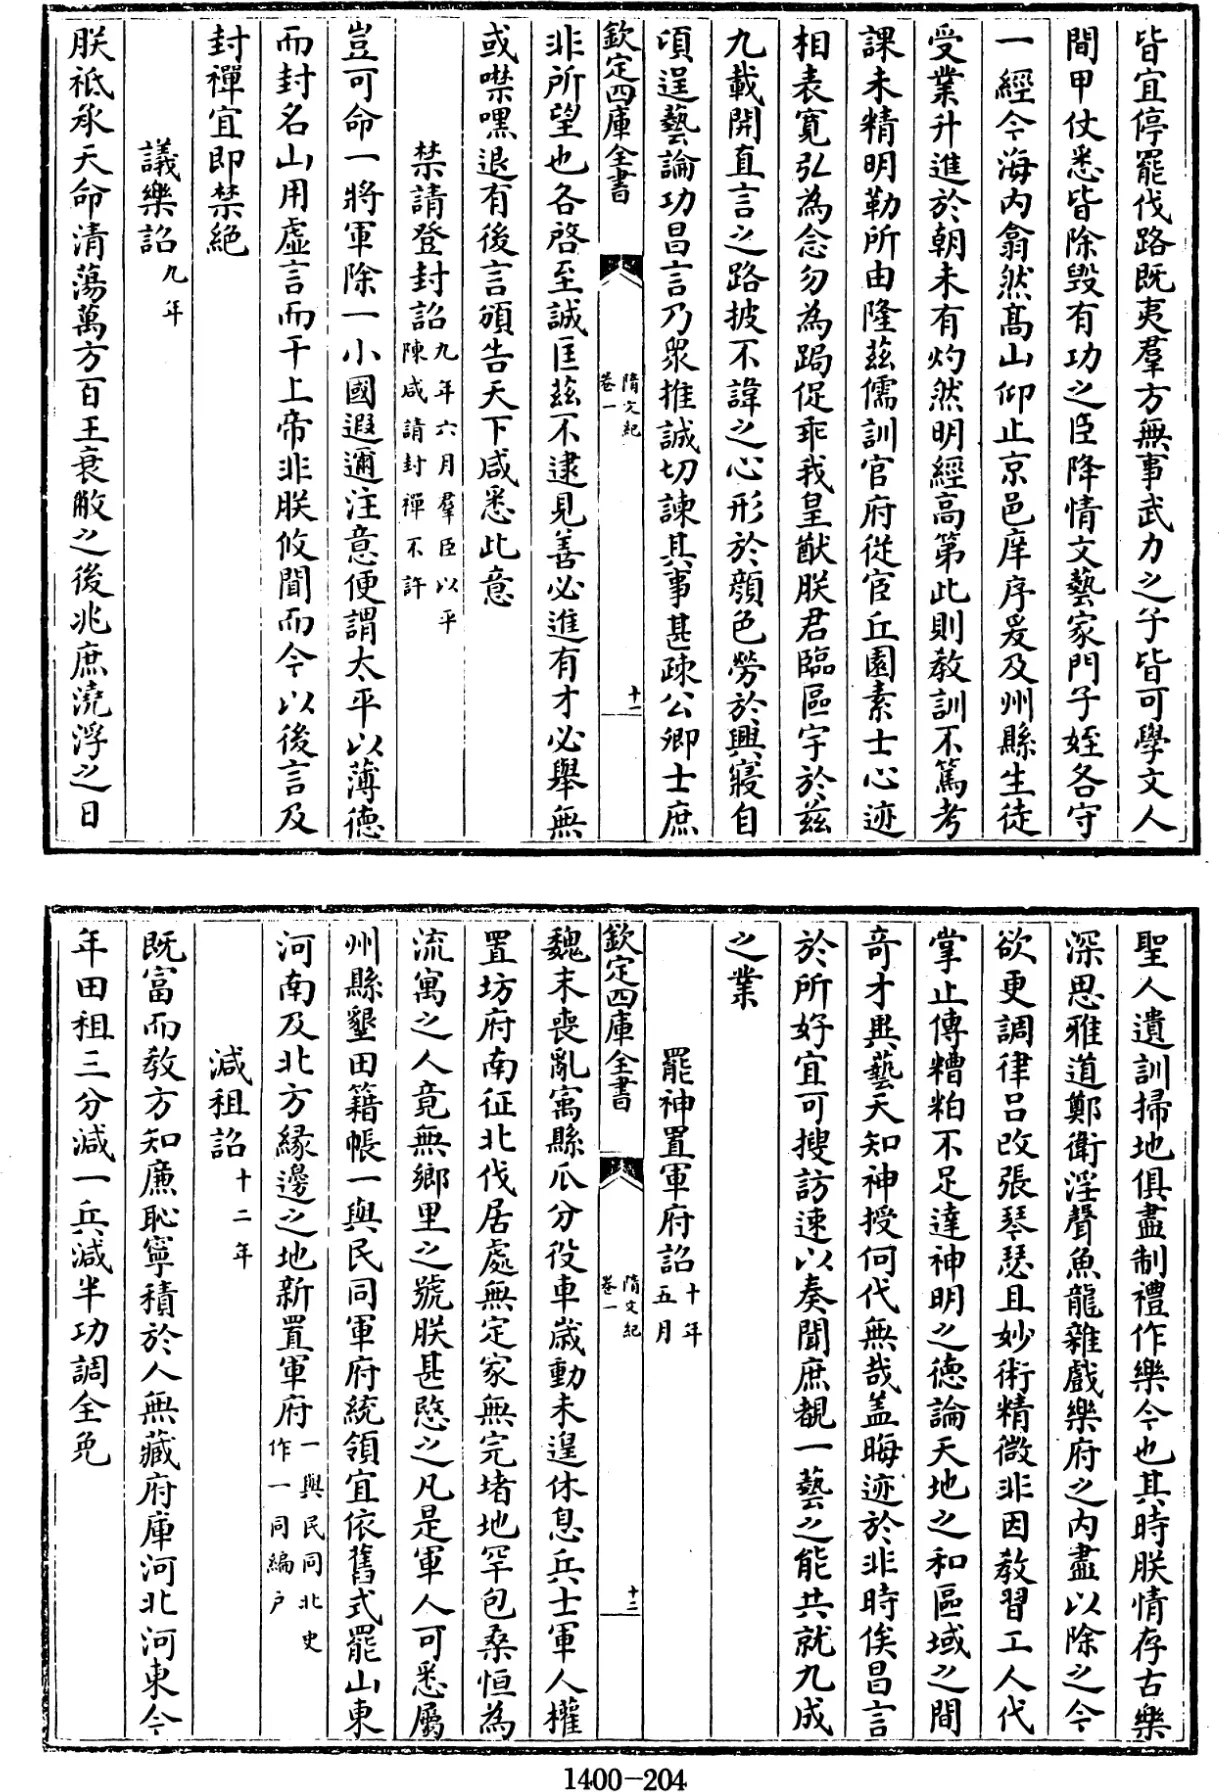 皆宜停罷伐路既夷羣方無事武力之子皆可學文人
間甲仗悉皆除毀有功之臣降情文藝家門子姪各守
一經令海內翕然髙山仰止京邑庠序爰及州縣生徒
受業升進於朝未有灼然明經高第此則教訓不篤考
課未精明勒所由隆茲儒訓官府從宦丘園素士心迹
相表寛弘為念勿為跼促乖我皇猷朕君臨區宇於茲
九載開直言之路披不諱之心形於顔色勞於興寢自
頃逞藝論功昌言乃衆推誠切諫其事甚疎公卿士庶
欽定四庫全書
隋文紀
卷一
十一
非所望也各啓至誠匡茲不逮見善必進有才必舉無
或噤嘿退有後言頒告天下咸悉此意
禁請登封詔九年六月羣臣以平
陳咸請封禪不許
豈可命一將軍除一小國遐邇注意便謂太平以薄德
而封名山用虛言而干上帝非朕攸聞而今以後言及
封禪宜即禁絶
議樂詔九年
朕祇承天命清蕩萬方百王衰敝之後兆庶澆浮之日
聖人遺訓掃地俱盡制禮作樂今也其時朕情存古樂
深思雅道鄭衛淫聲魚龍雜戲樂府之內盡以除之今
欲更調律吕改張琴瑟且妙術精微非因教習工人代
掌止傳糟粕不足達神明之德論天地之和區域之間
奇才異藝天知神授何代無哉盖晦迹於非時俟昌言
於所好宜可搜訪速以奏聞庶覩一藝之能共就九成
之業
罷神置軍府詔十年
五月
欽定四庫全書
隋文紀
卷一
十二
魏末喪亂寓縣瓜分役車歲動未遑休息兵士軍人權
置坊府南征北伐居處無定家無完堵地罕包桑恒為
流寓之人竟無鄉里之號朕甚愍之凡是軍人可悉屬
州縣墾田籍帳一與民同軍府統領宜依舊式罷山東
河南及北方緣邊之地新置軍府一與民同北史
作一同編户
減租詔十二年
既富而教方知廉恥寧積於人無藏府庫河北河東今
年田租三分減一兵減半功調全免
1400-204